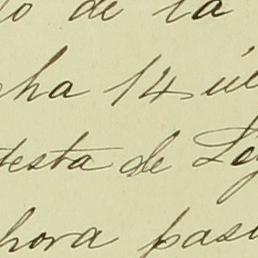 do de la
cha 14 úl
testa de Le
hora pasa